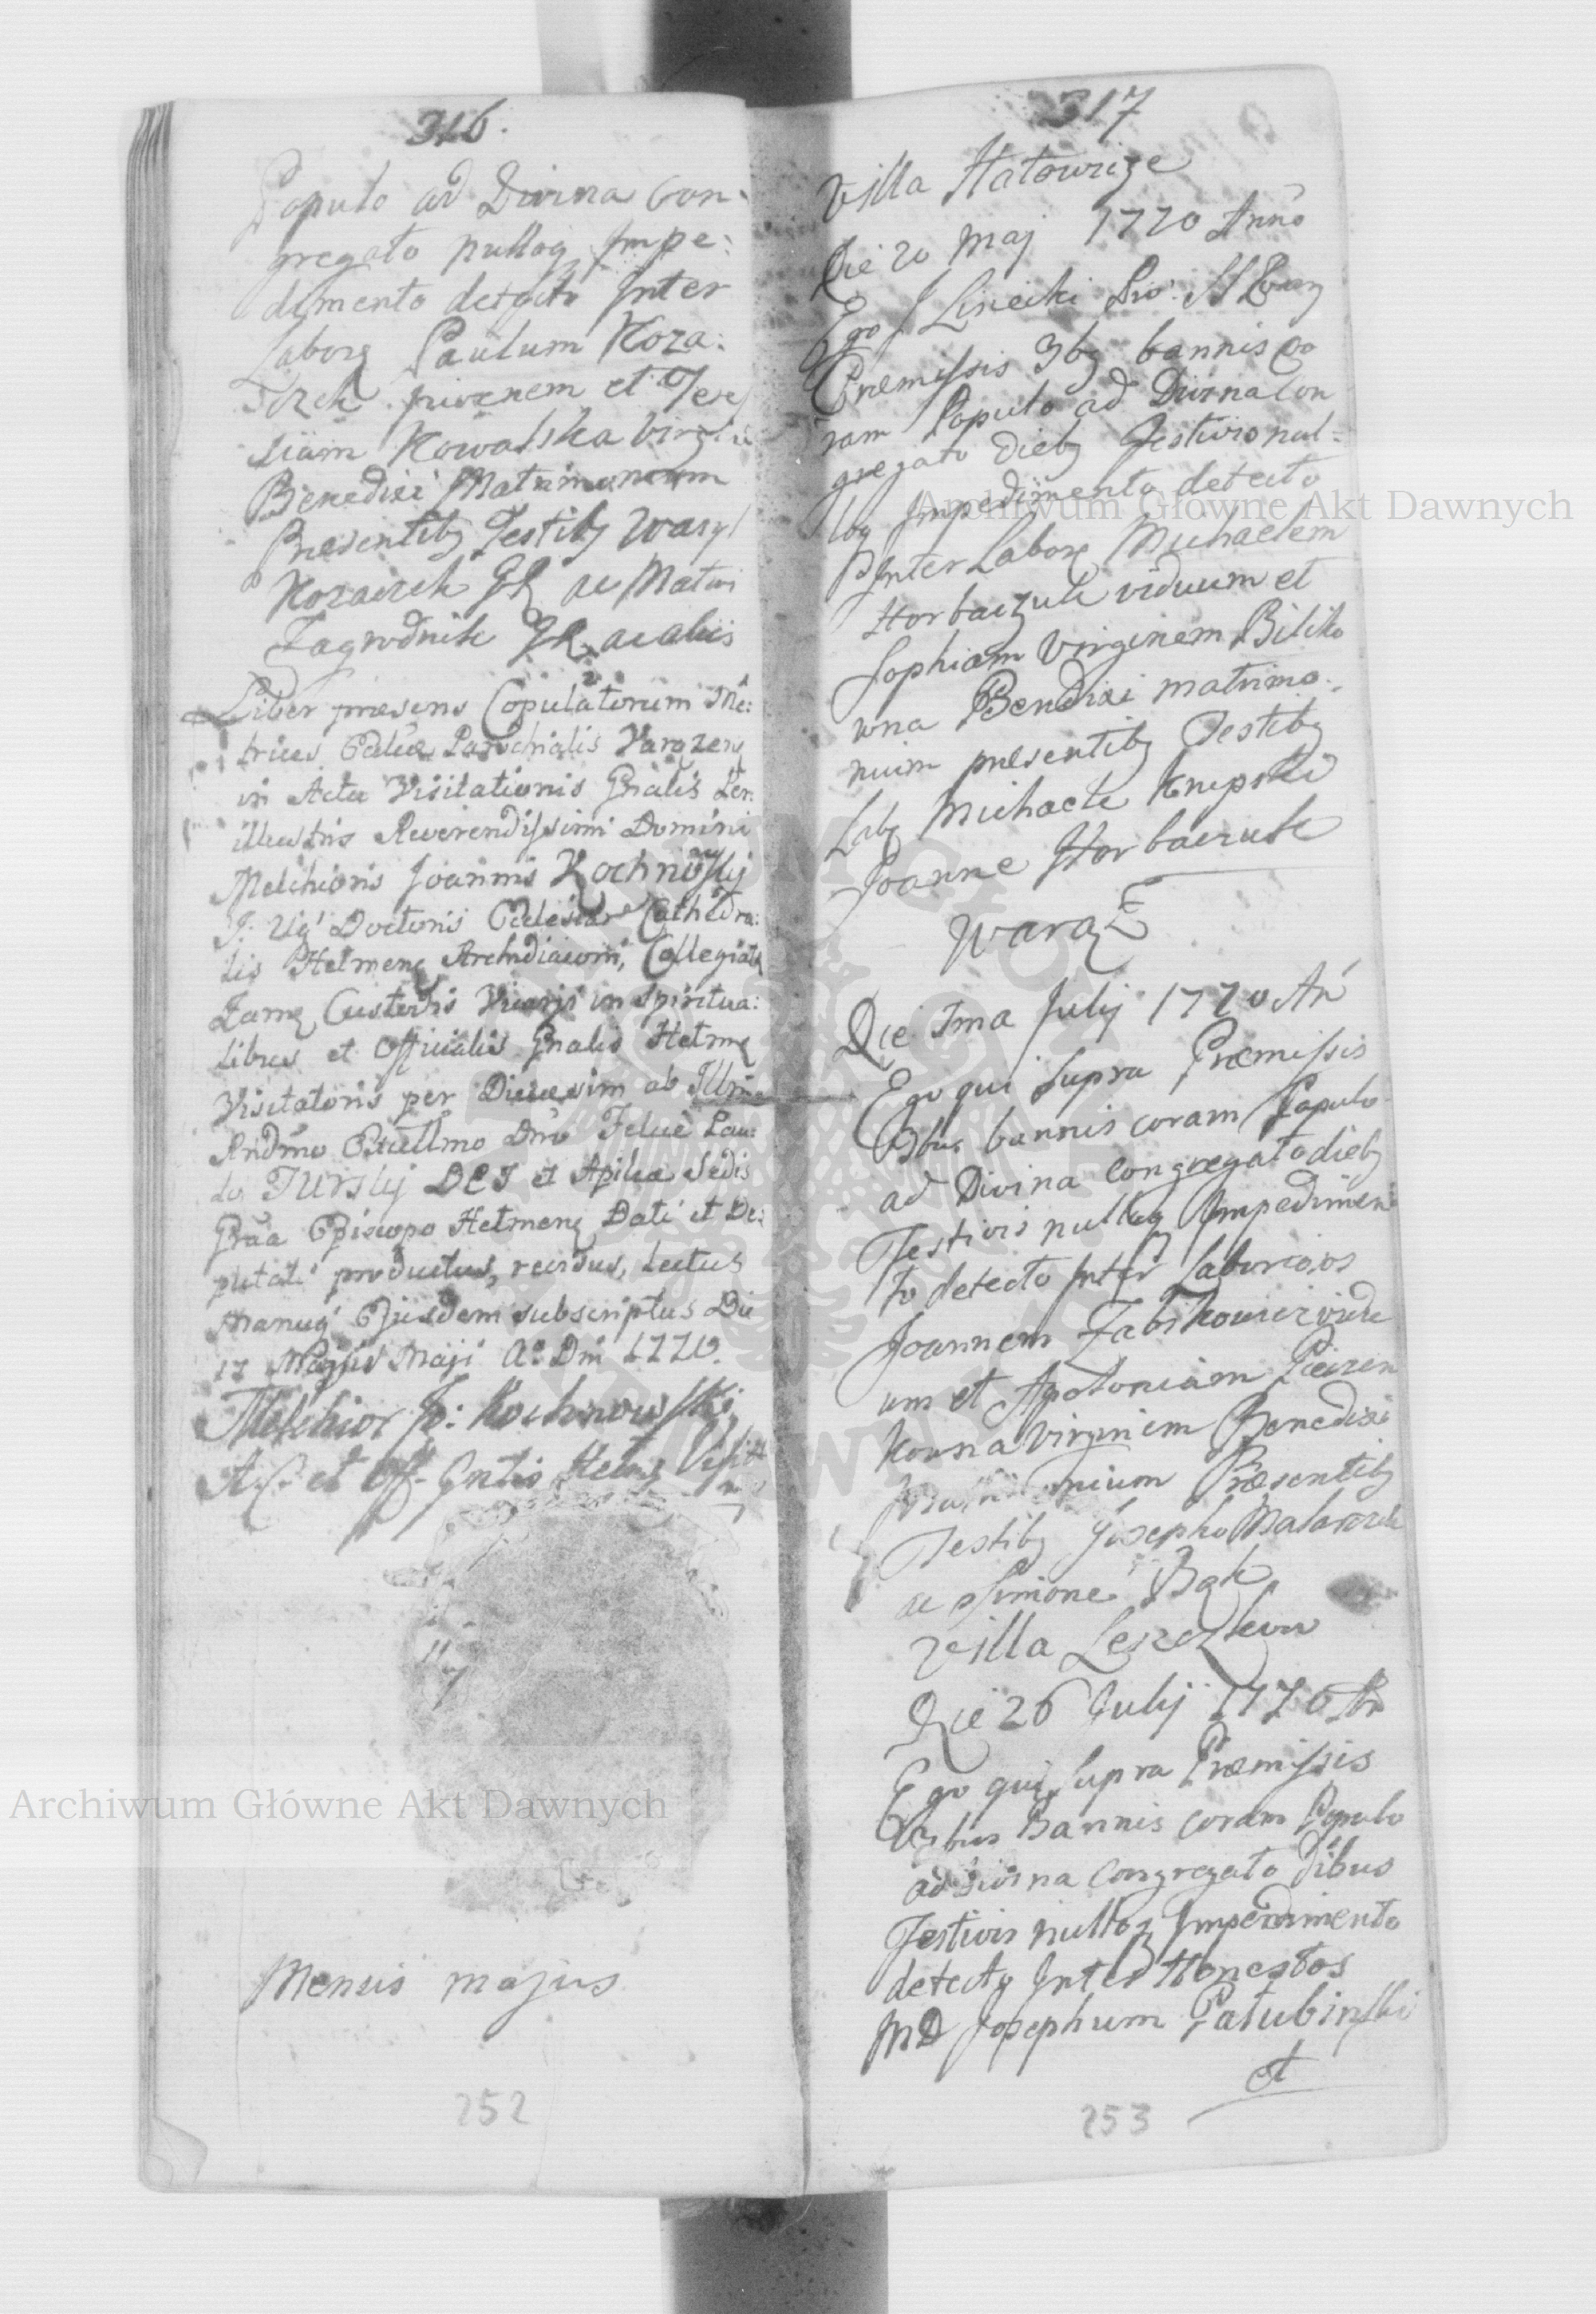 316.
Populo ad Divina Con:
gregato nulloq Impe:
dimento detecto Inter
Laborq Paulum Koza:
juvenem et There
siam Kowalska virgin
Benedixi Matrimonium
Praesentibq Testibq Wasyl
Kozaczek GR ac Matwi
Zagrodnik GR ac aliis
Liber praesens Copulatorum Me:
trices Eccliae Parochialis Varqzenq
in Actu Visitationis Gnalis Per:
illustris Reverendissimi Domini
Melchioris Joannis Kochnowskij
J. Uq Doctoris Ecclesiae Cathedra:
lis Helmenq Archidiaconi, Collegiatq
Zamq Custodis Vicarji in Spiritua:
libus et Officialis Gnalis Helmq
Visitatoris per Diecesim ab Illmo
Rndmo Excellmo Dno Felice Pau:
lo TURSkij DEI et Aplicae Sedis
Graa Episcopo Helmenq Dati et De:
putati productus, revisus, lectus
Manuq Ejusdem subscriptus Die
17 Maji Ao Dni 1770.
Melchior Jo: Kochnowski
A. C. et Off. Gnlis Helmq Visit
Mensis majus
252
317
Villa Hatowice
Die 20 Maj 1770 Anno
Ego J Lisiecki
Praemissis 3bq bannis co
ram Populo ad Divina Con
gregato diebq Festivis nul=
loq Impedimento detecto
Inter Laborq Michaelem
Horbaczuk viduum et
Sophiam Virginem Biliko
wna Bendixi matrimo:
nium presentibq Testibq
Labq Michaele Krupski
Joanne Horbaczuk
Warqz
Die 1ma Julij 1770 An
Ego qui supra Praemissis
3bus bannis coram Populo
ad Divina congregato diebq
Festivis nulloq Impedimen
to detecto Inter Laboriosos
Joannem Fabikowicz vidu
um et Apoloniam
kowna virginem Benedixi
Matrimonium Praesentibq
Testibq Josepho
ac Simone Bqk
Villa Leszczkow
Die 26 Julij 1770 An
Ego qui Supra Praemissis
3bus Bannis coram Populo
ad Divina Congregato Dibus
Festivis nulloq Impedimento
detecto Inter Honestos
MD Josephum Patubinski
et
253
Archiwum Główne Akt Dawnych
Archiwum Główne Akt Dawnych